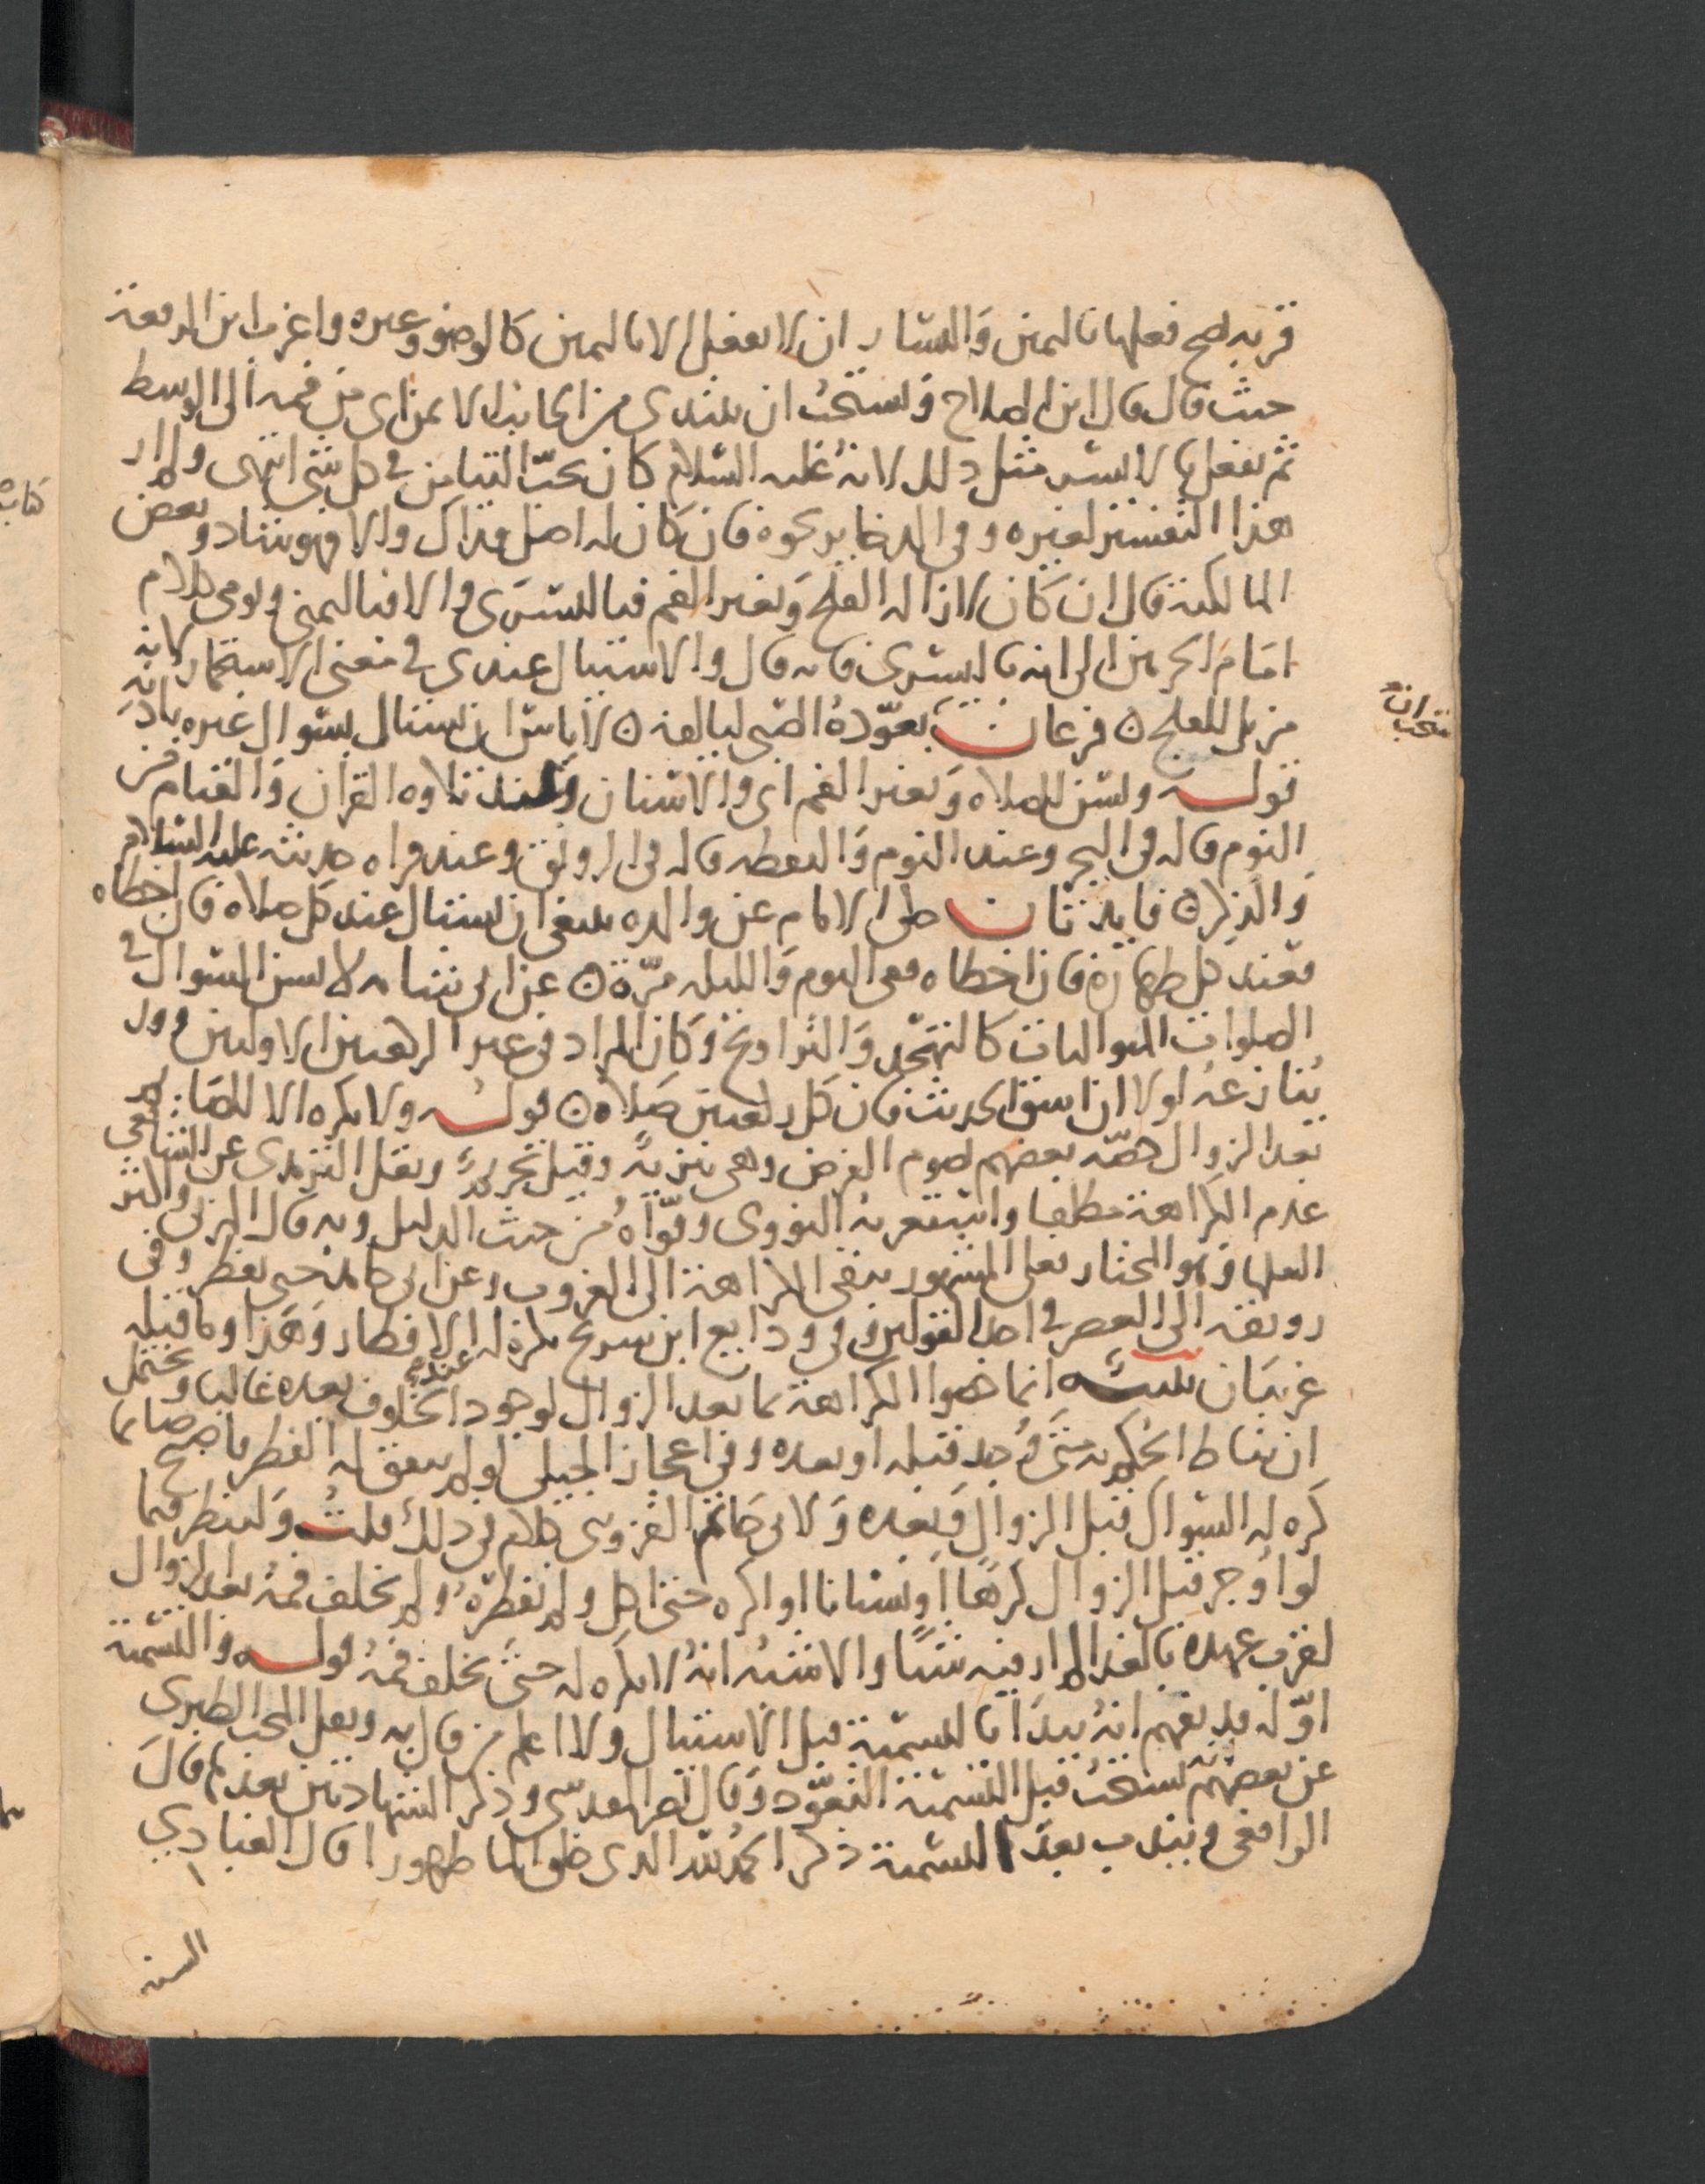 قربه يصح فعلها باليمين واليسار ان لا يفعل الا باليمين كالوضو وغيره واغرب ابن الرفعة
حيث قال قال ابن الصلاح ويستحب ان يبتدي من الجانب الايمن اي من فمه الى الوسط
ثم يفعل بالايسر مثل ذلك لانه عليه السلام كان يحب التيامن في كل شي انتهى ولم ار
هذا التفسير لغيره وفي الذخاير نحوه فان كان له اصل فذاك والا فهو شاد وبعض
المالكية قال ان كان لازالة القلح وتغير الفم فباليسرى والا فباليمنى ويومي كلام
امام الحرمين الى انه باليسرى فانه قال والاستياك عندي في معنى الاستجمار لانه
مزيل للقلح ه فرعان يعوده الصبي ليالفه ه لا باس ان يستاك بسواك غيره باذنه
قوله ويسن للصلاه وتغير الفم اي والاسنان وعند تلاوه القران والقيام من
النوم قاله في البحر وعند النوم واليقظه قاله في الرونق وعند قراه حديثه عليه السلام
والذكر ه فايدتان حكى الامام عن والده ينبغي ان يستاك عند كل صلاه فان اخطاه
فعند كل طهارة فان اخطاه ففي اليوم والليله مرة ه عن ابي شامه لا يسن السواك في
الصلوات المتواليات كالتهجد والتراويح وكان المراد في غير الركعتين الاوليين وقد
ينازعه اولا ان استوا الحديث فان كل ركعتين صلاه ه قوله ولا يكره الا للصايم
بعد الزوال خصه بعضهم لصوم الفرض وهي تنزيه وقيل تحريم ونقل الترمذي عن الشافعي
عدم الكراهة مطلقا واستغربه النووي وقواه من حيث الدليل وبه قال المزني واكثر
العلما وهو المختار فعلى المشهور تبقى الكراهة الى الغروب وعن ابي حامد حتى يفطر وفي
رويقه الى العصر في احد القولين وفي ودايع ابن سريج يكره له الى الافطار وهذا وما قبله
غريبان تنبيه انما خصوا الكراهة بما بعد الزوال لوجود الخلوف عنده بعده غالبا ويحتمل
ان يناط الحكم به متى وجد قبله او بعده وفي اعجاز الجيلي لو لم يتفق له الفطر فاصبح صايما
كره له السواك قبل الزوال وبعده ولابي حاتم القزويني كلام في ذلك قلت ولينظر فيما
لو اوجر قبل الزوال كرها او نسيانا او اكره حتى اكل ولم نفطره ولم يخلف فمه بعد الزوال
لقرب عهده بالغذا لم ار فيه شيا والاشبه انه لا يكره له حتى يخلف فمه قوله والتسمية
اوله قد يفهم انه يبدا بالتسمية قبل الاستياك ولا اعلم من قال به ونقل المحب الطبري
عن بعضهم انه يستحب قبل التسمية التعوذ وقال نصر المقدسي وذكر الشهادتين بعد كما قال
الرافعي ويندب بعد التسمية ذكر الحمد لله الذي خلق الما طهورا قال العبادي
السنه